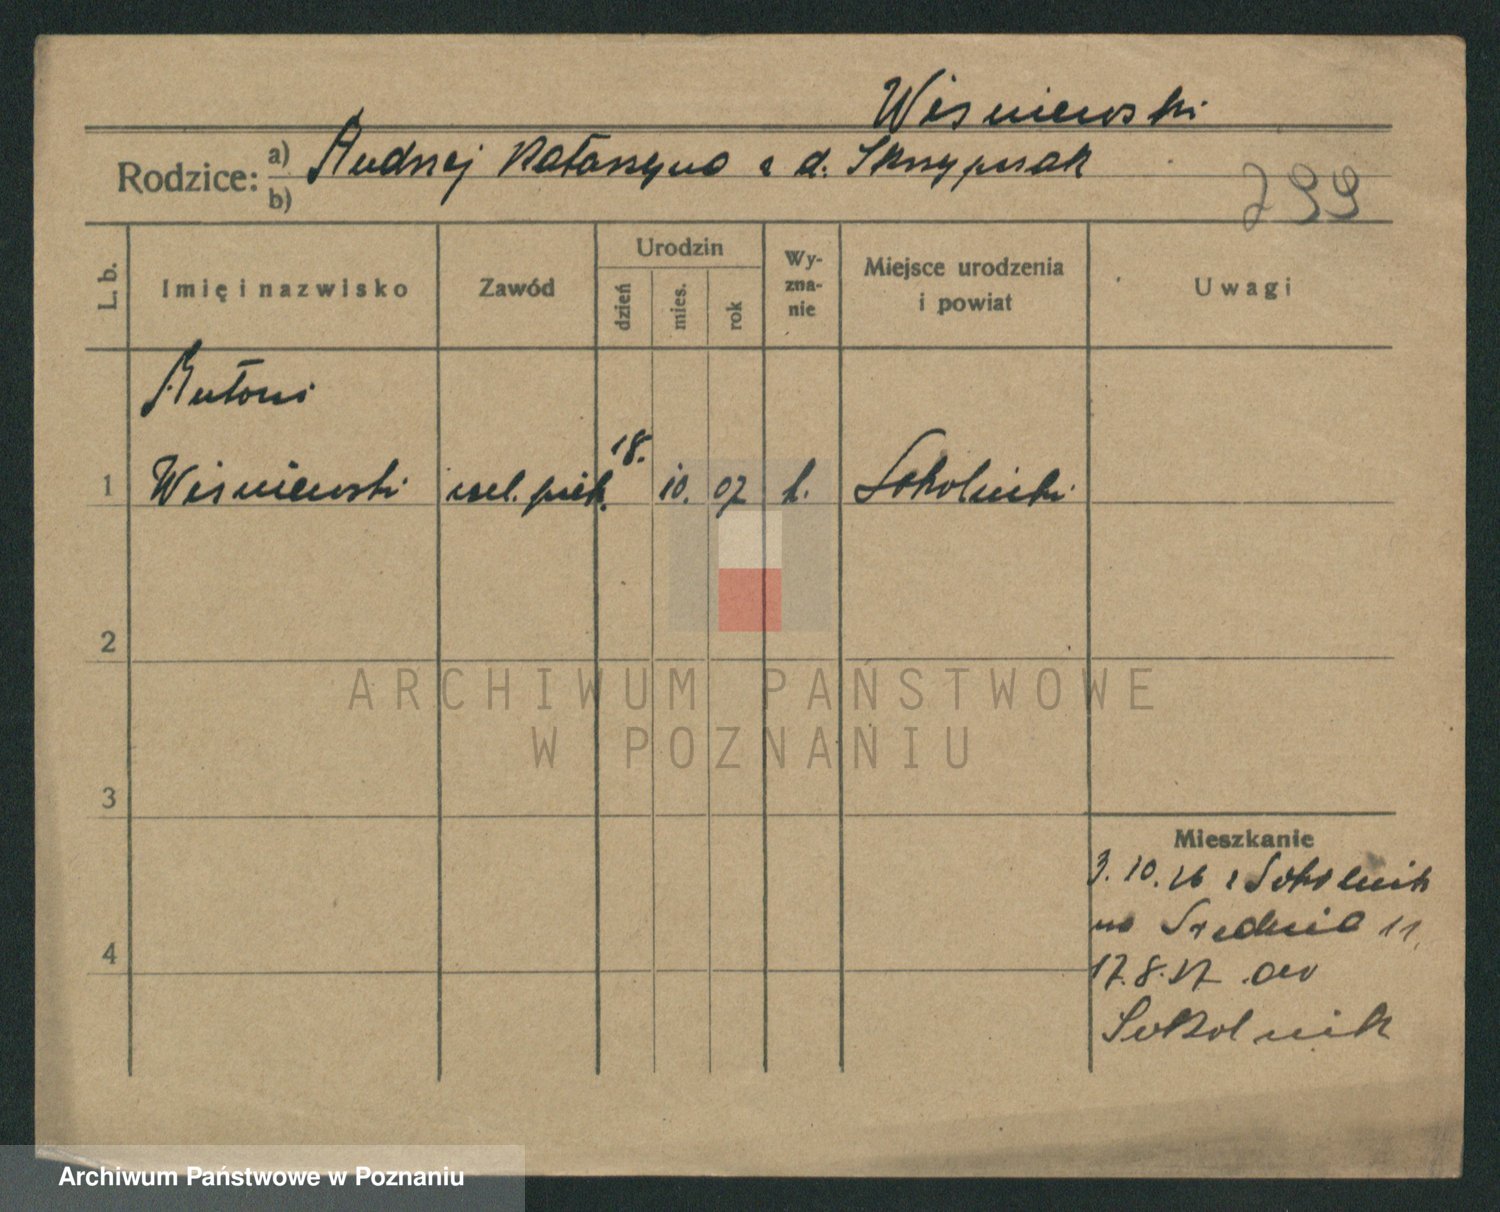 Wiśniewski
Rodzice: a) Andrzej Katarzyna z d. Skrzypczak
b)
299
L. b.
Imię i nazwisko
Zawód
Urodzin
dzień
mies.
rok
Wy-
zna-
nie
Miejsce urodzenia
i powiat
Uwagi
Antoni
1 Wiśniewski czel. piek. 18. 10. 07 k. Sokolniki
2
3
4
Mieszkanie
3. 10. 26 z Sokolnik
na Średnia 11.
17. 8. 27 do
Sokolnik
ARCHIWUM PAŃSTWOWE
W POZNANIU
Archiwum Państwowe w Poznaniu